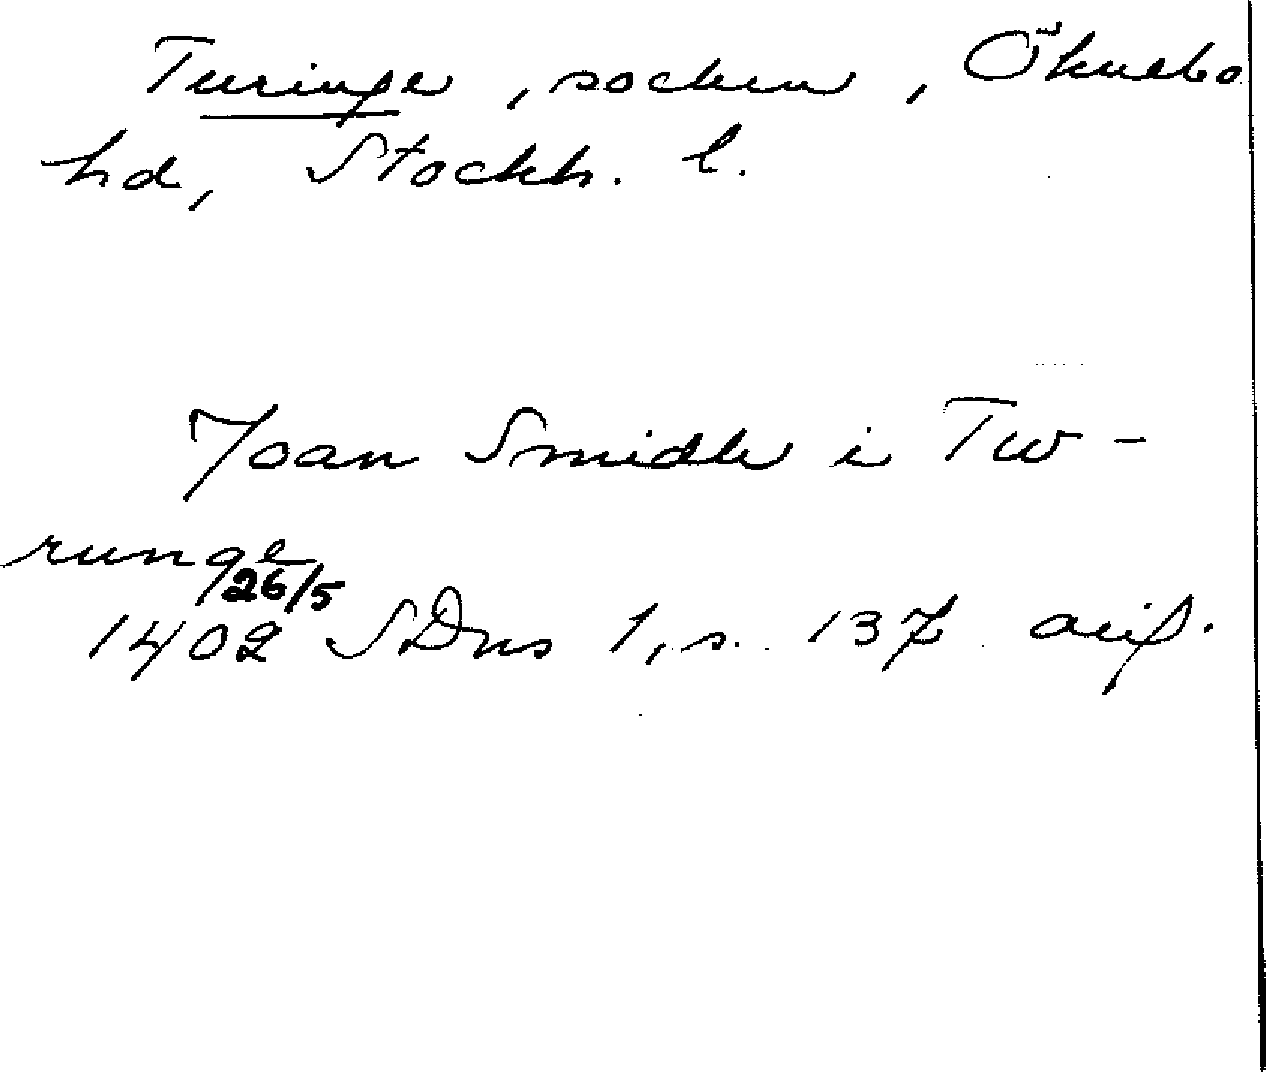 Turinge, socken, Öknebo
hd, Stockh. l.
Joan Smidh i Tw-
runge
26/5
1402 SDns 1, s. 137 avs.